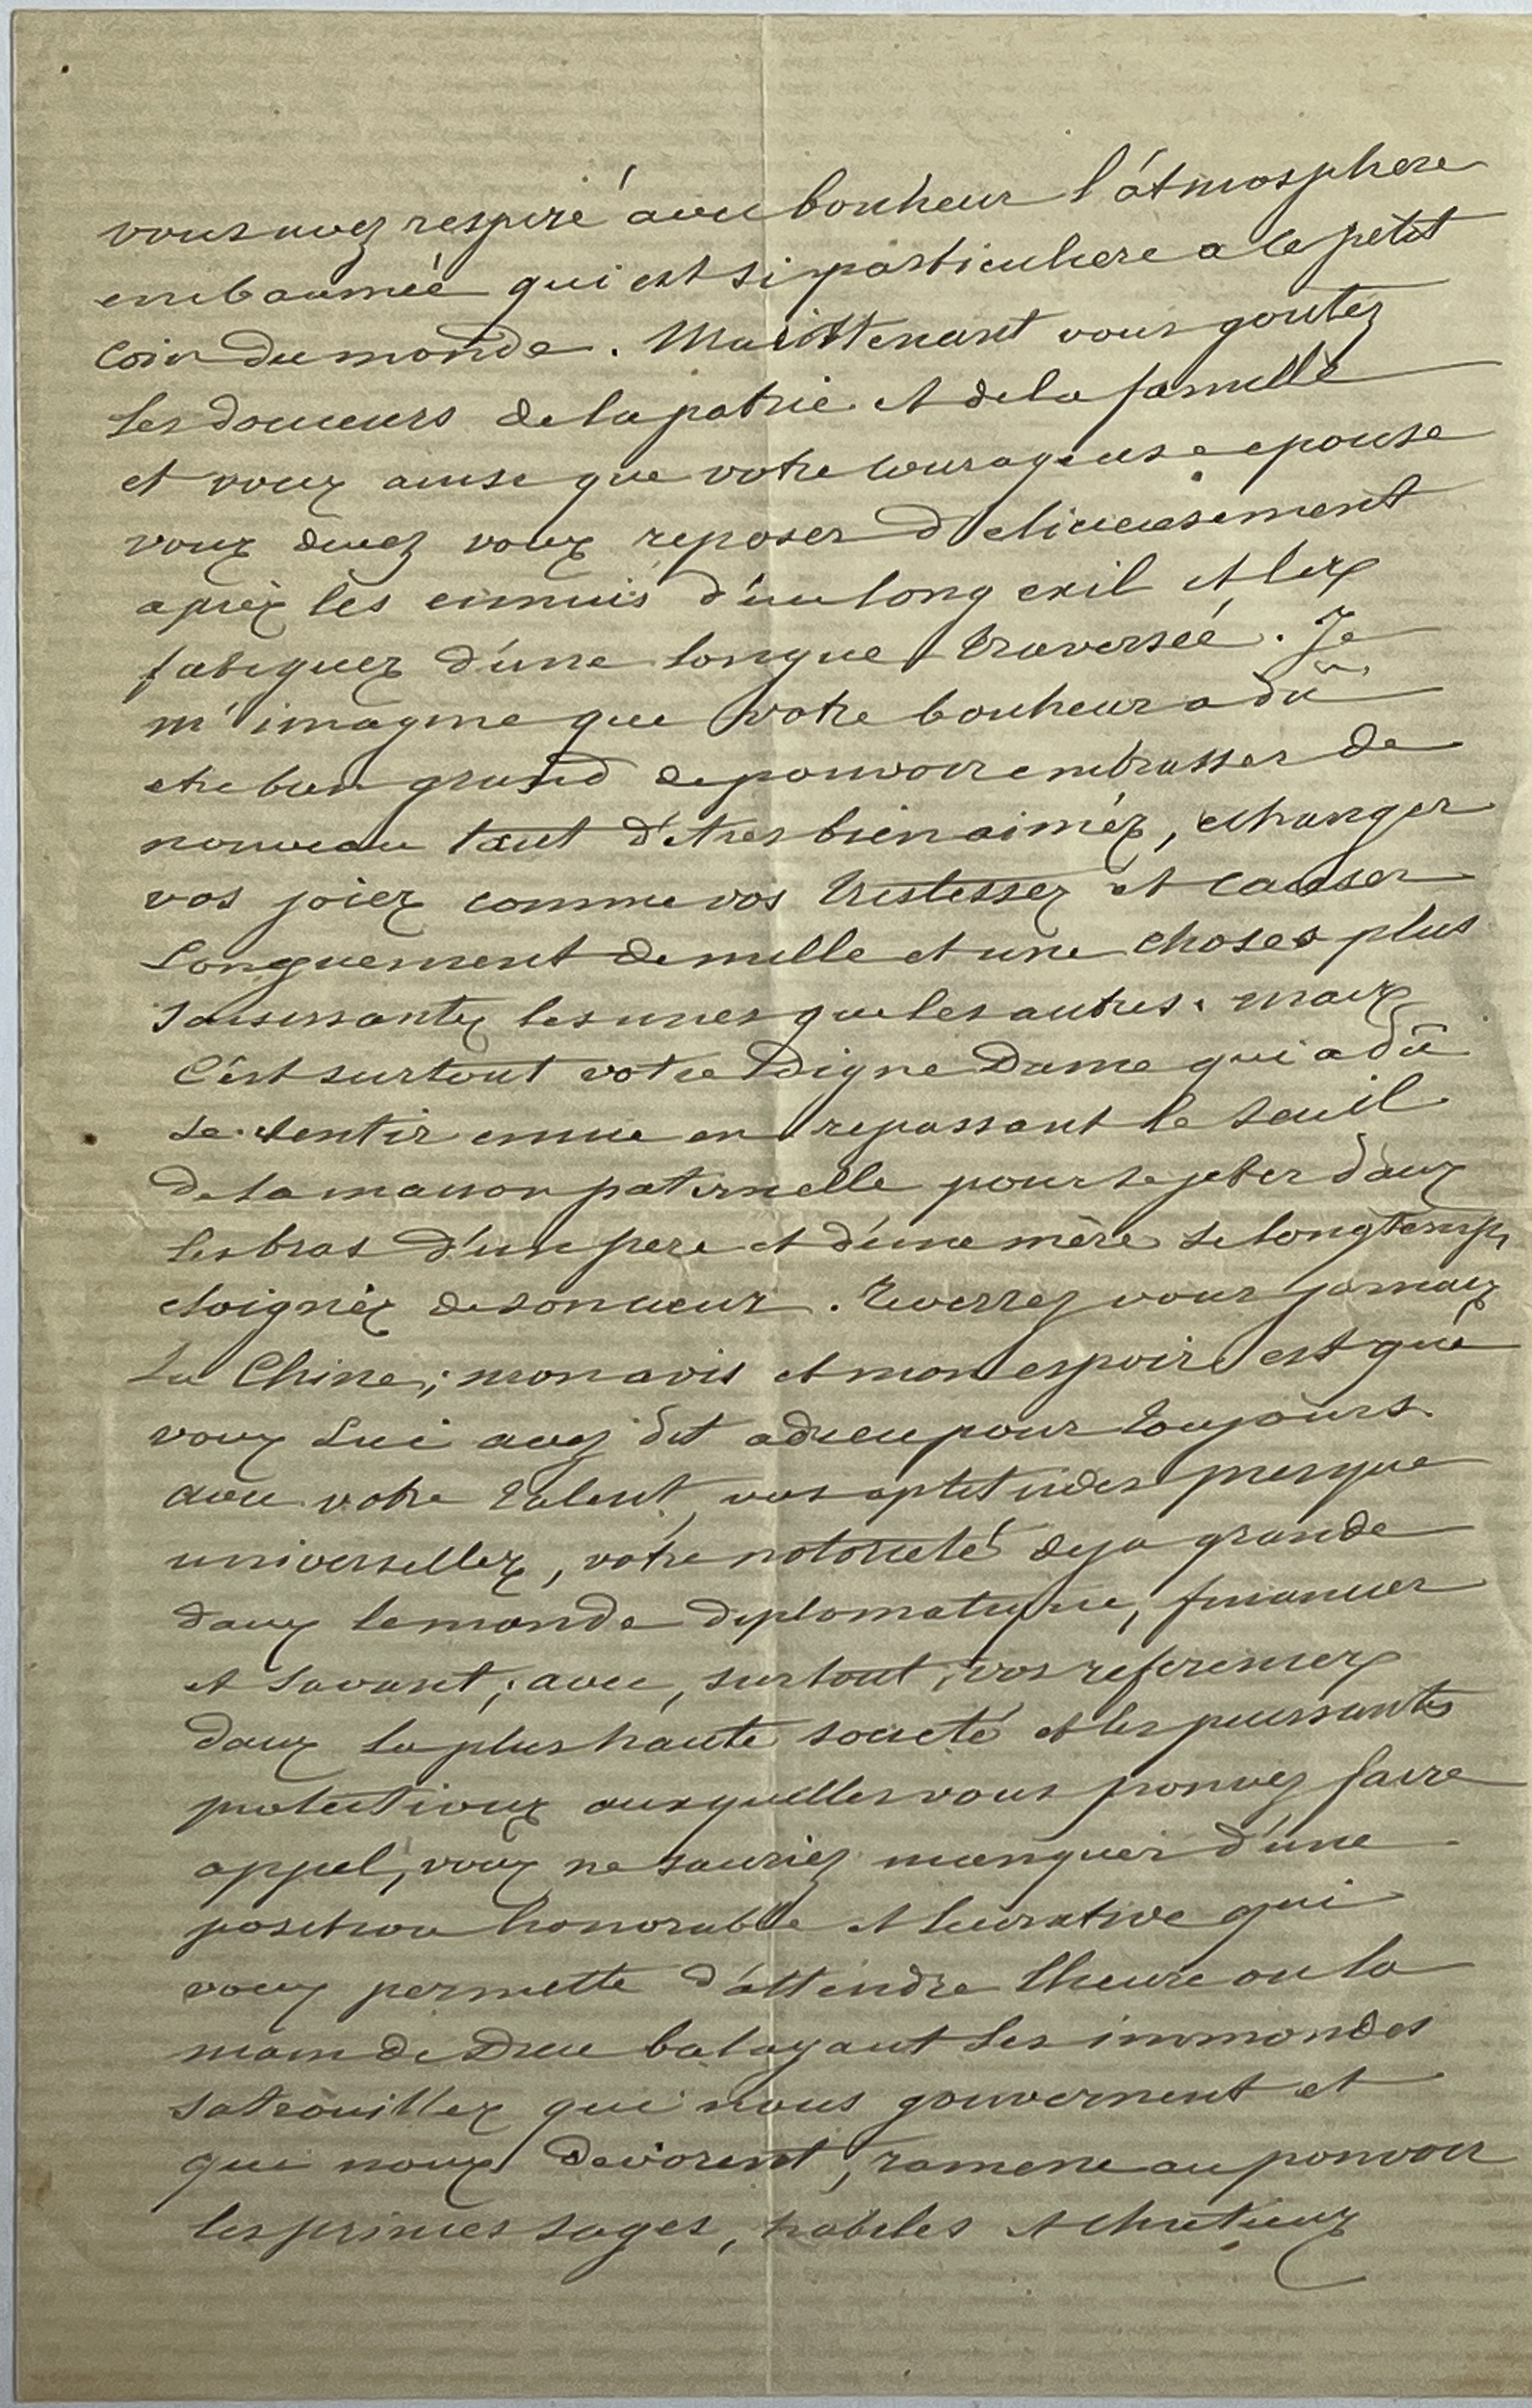 vous avez respiré avec bonheur l'átmosphere
embaumée qui est si particuliere a ce petit
coin du monde. Maintenant vous goutez
les douceurs de la patrie et de la famille
et vous ainse que votre courageuse epouse
vous devez vous reposer delicieusement
après les ennuis d'un long exil et les
fatigues d'une longue traversée. Je
m'imagine que votre bonheur a dû
etre bien grand de pouvoir embrasser de
nouveau tant d'etres bien aimés, echanger
vos joies comme vos tristesses et causer
longuement de mille et une choses plus
saisissantes les unes que les autres. mais
C'est surtout votre digne Dame qui a dû
se sentir emue en repassant le seuil
de la maison paternelle pour se jeter dans
les bras d'un pere et d'une mère si longtemps
eloignés de son cœur. Reverrez vous jamais
La Chine; mon avis et mon espoir est que
vous lui avez dit adieu pour toujours.
avec votre talent, vos aptitudes presque
universelles, votre notorieté deja grande
dans le monde diplomatique, financier
et savant; avec, surtout, vos references
dans la plus haute societé et les puissants
protections auxquelles vous pouvez faire
appel, vous ne sauriez manquer d'une
position honorable et lucrative qui
vous permette d'attendre lheure ou la
main de Dieu balayant les immondes
satrouilles qui nous gouvernent et
qui nous devorent, ramene au pouvoir
les princes sages, habiles et chretiens